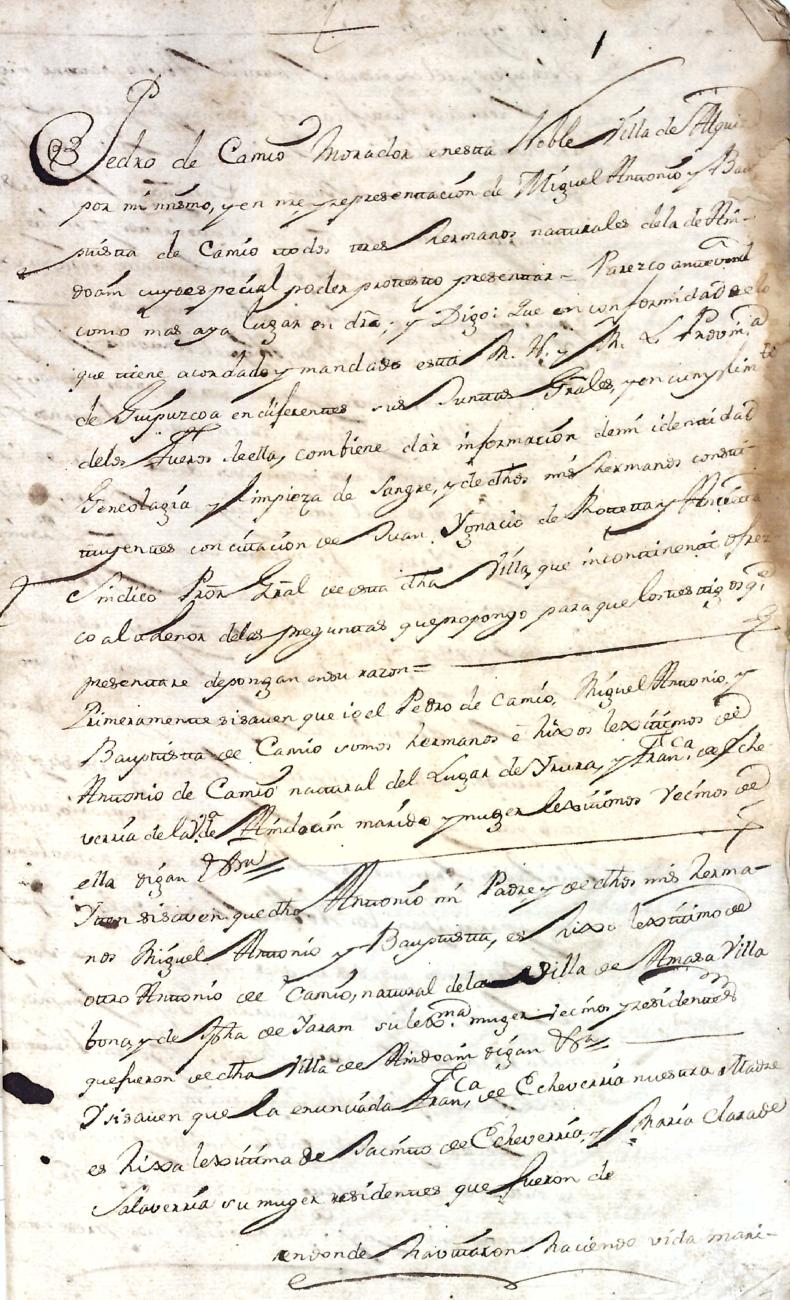 1
Pedro de Camio Morador enesta Noble Villa de
por mi mismo, y en representacion de Miguel Antonio y Bau
ptista de Camio todos tres hermanos naturales dela de An-
doain cuyo especial poder protesto presentar = Parezco ante vmd
como mas aya lugar en dro; y Digo: Que en conformidad delo
que tiene acordado y mandado esta M. N. y M. L. Provinª
de Guipuzcoa en diferentes sus Juntas Grales, y en cumplimto
delos fueros deella, combiene dar informacion demi identidad
Geneologia y limpieza de Sangre, y de dhos mis hermanos consti-
tuyentes con citacion de Juan Ygnacio de
Sindico Pror Gral de esta dha Villa, que incontinenti ofrez
co al thenor delas preguntas que propongo para que los testigos qe
presentare depongan en su razon =
Primeramente si saven que io el Pedro de Camio, Miguel Antonio, y
Bauptista de Camio somos hermanos e hixos lexitimos de
Antonio de Camio natural del Lugar de Yrura, y Franca de Eche
verria de la Va de Andoain marido y muger lexitimos vecinos de
ella digan &
Yten si saven que dho Antonio mi Padre y de dhos mis herma-
nos Miguel Antonio y Bauptista, es hixo lexitimo de
otro Antonio de Camio, natural dela Villa de Amasa Villa
bona, y de de su lexma muger vecinos y residentes
que fueron de dha Villa de Andoain digan &
Y si saven que la enunciada Franca de Echeverria nuestra Madre
es hixa lexitima de Jacinto de Echeverria, y Maria Clara de
Salaverria su muger residentes que fueron de
en donde havitaron haciendo vida mari-